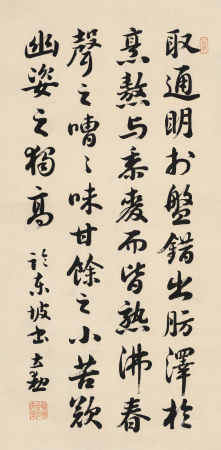 取通明於盤錯出肪澤於
烹熬与黍麥而皆熟沸春
聲之嘈〻味甘餘之小苦歎
幽姿之獨高
東坡書